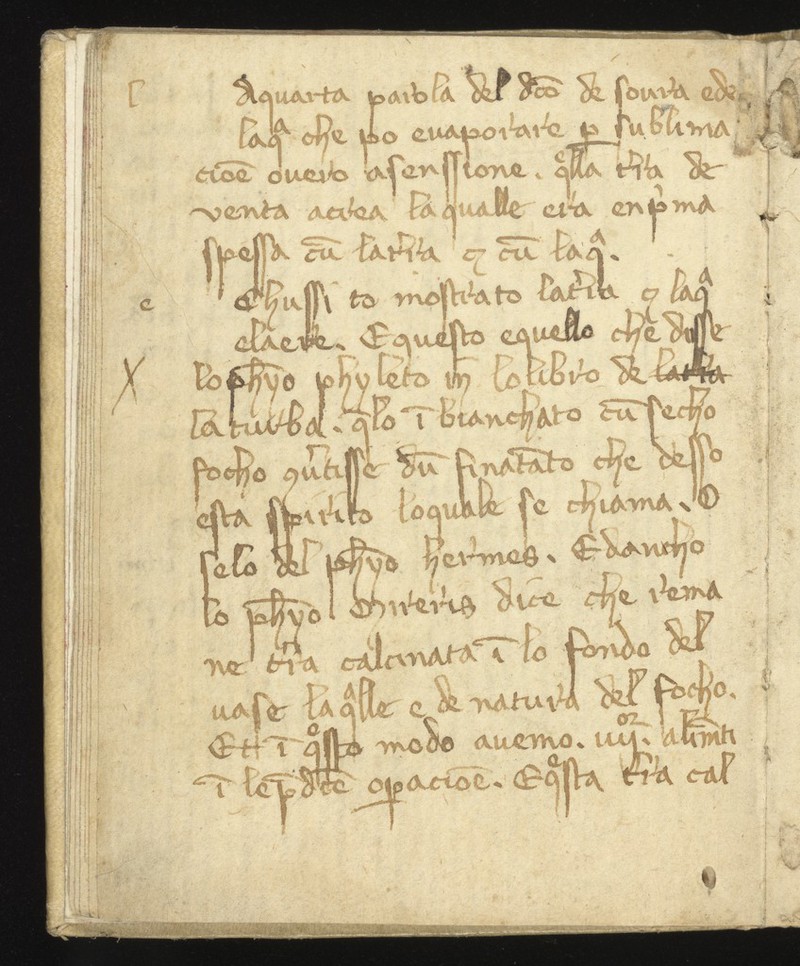 [ aquarta parola del dcō de soura ede
laqª che po euaporare p̱ sublima
cioē ouero asenssione. qͦlla tr̄ra de
uenta aerea laqualle era enp̄ma
spessa cū latr̄ra ꝫ cū laqª.
e Chussi to mostrato latr̄ra ꝫ laqª
elaere. Equesto equello che disse
X loph̄yo phyleto in̄ lolibro de latr̄ra
laturba. q̄lo ī bianchato cū secho
focho dū che desso
esta spirito loquale se chiama. O
selo del ph̄yo hermes. Edancho
lo ph̄yo dice che rema
ne tr̄ra calcinata ī lo fondo del
uase laqªlle e de natura del focho.
Et ī qͦsto modo auemo. alim̄ti
ī lep̄dcē op̱acioē. Eqͦsta tr̄ra cal